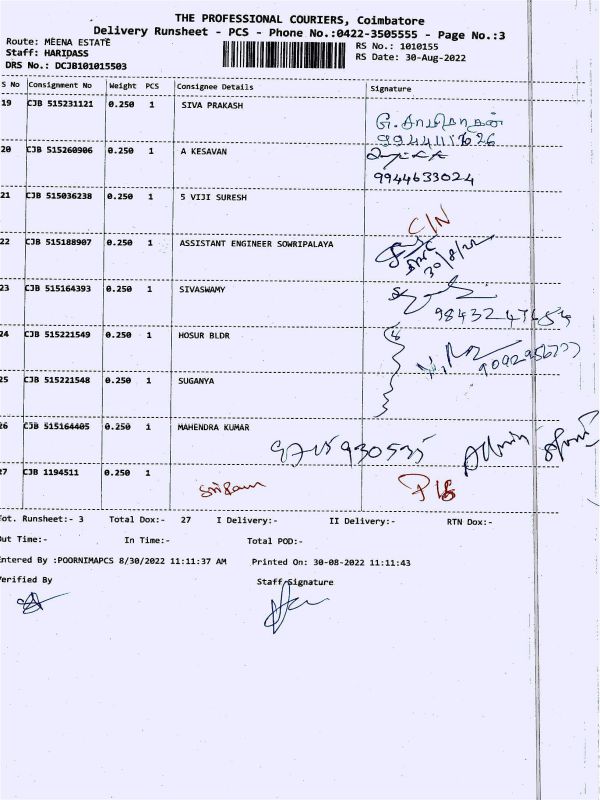 THE PROFESSIONAL COURIERS, Coimbatore
Delivery Runsheet - PCS - Phone No.:0422-3505555 - Page No.:3
Route: MEENA ESTATE
Staff: HARIDASS
DRS No.: DCJB101015503
RS No.: 1010155
RS Date: 30-Aug-2022
S No Consignment No Weight PCS Consignee Details Signature
19 CJB 515231121 0.250 1 SIVA PRAKASH
20 CJB 515260906 0.250 1 A KESAVAN
9944633024
21 CJB 515036238 0.250 1 S VIJI SURESH
C/N
22 CJB 515188907 0.250 1 ASSISTANT ENGINEER SOWRIPALAYA
30/8/22
23 CJB 515164393 0.250 1 SIVASWAMY
24 CJB 515221549 0.250 1 HOSUR BLDR
25 CJB 515221548 0.250 1 SUGANYA
26 CJB 515164405 0.250 1 MAHENDRA KUMAR
Admin
27 CJB 1194511 0.250 1
Sriram
Tot. Runsheet:- 3 Total Dox:- 27 I Delivery:- II Delivery:- RTN Dox:-
Out Time:- In Time:- Total POD:-
Entered By :POORNIMAPCS 8/30/2022 11:11:37 AM Printed On: 30-08-2022 11:11:43
Verified By Staff Signature